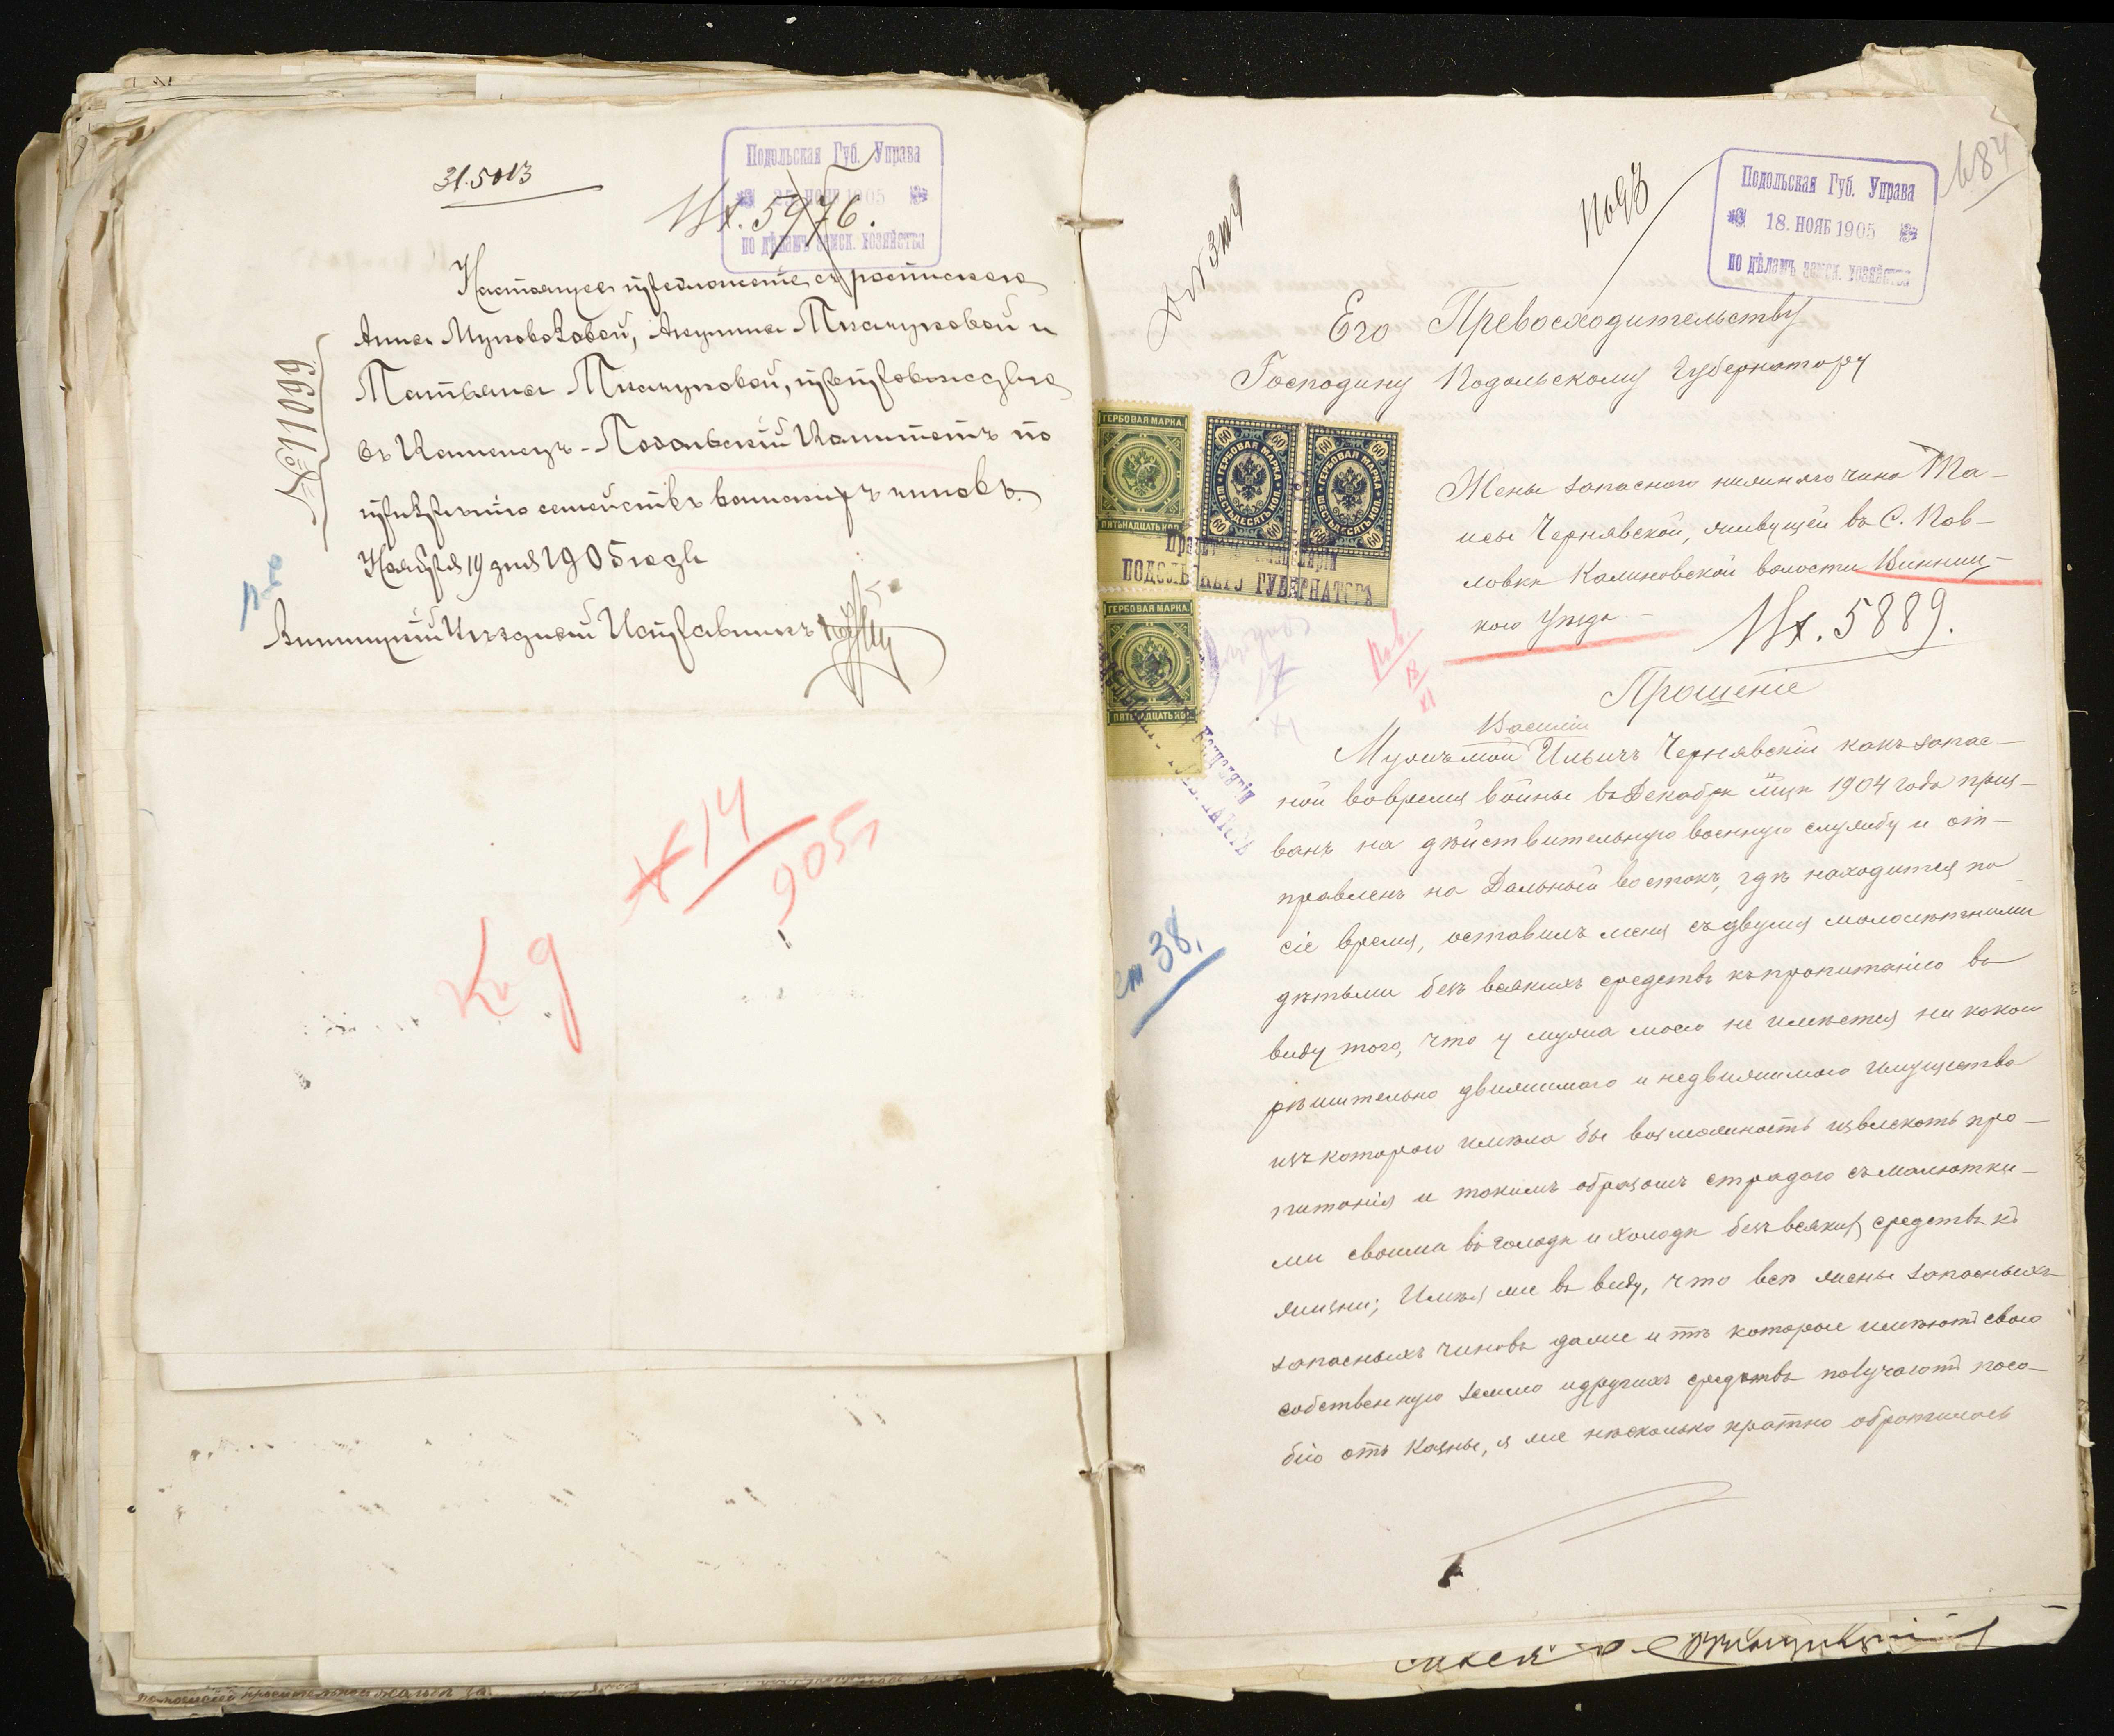 31.5013
Подольская Губ. Управа
25 НОЯБ 1905
по дѣламъ земск. хозяйства
Вх. 5976.
Настоящее предложеніе съ росписками
Анны Муковозовой, Акулины Ткачуковой и
Татьяны Ткачуковой, препровождаю
въ Каменецъ-Подольскій Комитетъ по
призрѣнію семействъ воинскихъ чиновъ.
Ноября 19 дня 1905 года
№ 11099
Винницкій Уѣздный Исправникъ
14
905
К. д
Подольская Губ. Управа
18. НОЯБ 1905
по дѣламъ земск. хозяйства
684
Его Превосходительству
Господину Подольскому Губернатору
ГЕРБОВАЯ МАРКА.
ПЯТЬНАДЦАТЬ КОП.
60 60
ГЕРБОВАЯ МАРКА
ШЕСТЬДЕСЯТЪ КОП.
60 60
60 60
ГЕРБОВАЯ МАРКА
ШЕСТЬДЕСЯТЪ КОП.
60 60
ПОДОЛЬСКАГО ГУБЕРНАТОРА
ГЕРБОВАЯ МАРКА.
ПЯТЬНАДЦАТЬ КОП.
Канцеляріи
Жены запаснаго нижняго чина Та-
исы Чернявской, живущей въ С. Пав-
ловкѣ Калиновской волости Винниц-
каго Уѣзда.
Вх. 5889.
Прошеніе
Василій
Мужъ мой Ильичъ Чернявскій какъ запас-
ной вовремя войны въ Декабрѣ м-цѣ 1904 года приз-
ванъ на дѣйствительную военную службу и от-
правленъ на Дальній востокъ, гдѣ находится по
сіе время, оставилъ меня съ двумя малолѣтними
дѣтьми безъ всякихъ средствъ къ пропитанію въ
виду того, что у мужа моего не имѣется ни какого
рѣшительно движимаго и недвижимаго имущества
изъ котораго имѣла бы возможность извлекать про-
питанія и такимъ образомъ страдаю съ малютка-
ми своима въ голодѣ и холодѣ безъ всякихъ средствъ къ
жизни; Имѣя же въ виду, что всѣ жены запасныхъ
запасныхъ чиновъ даже и тѣ которые имѣютъ свою
собственную землю и другихъ средствъ получаютъ посо-
біе отъ Казны, я же нѣсколько кратно обратилась
ст 38.